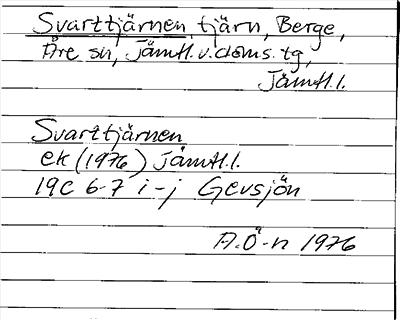 Svarttjärnen, tjärn, Berge,
Åre sn, Jämtl. v. doms. tg,
Jämtl. l.
Svarttjärnen
ek (1976) Jämtl. l.
19C 6-7 i-j Gevsjön
A.Ö-n 1976